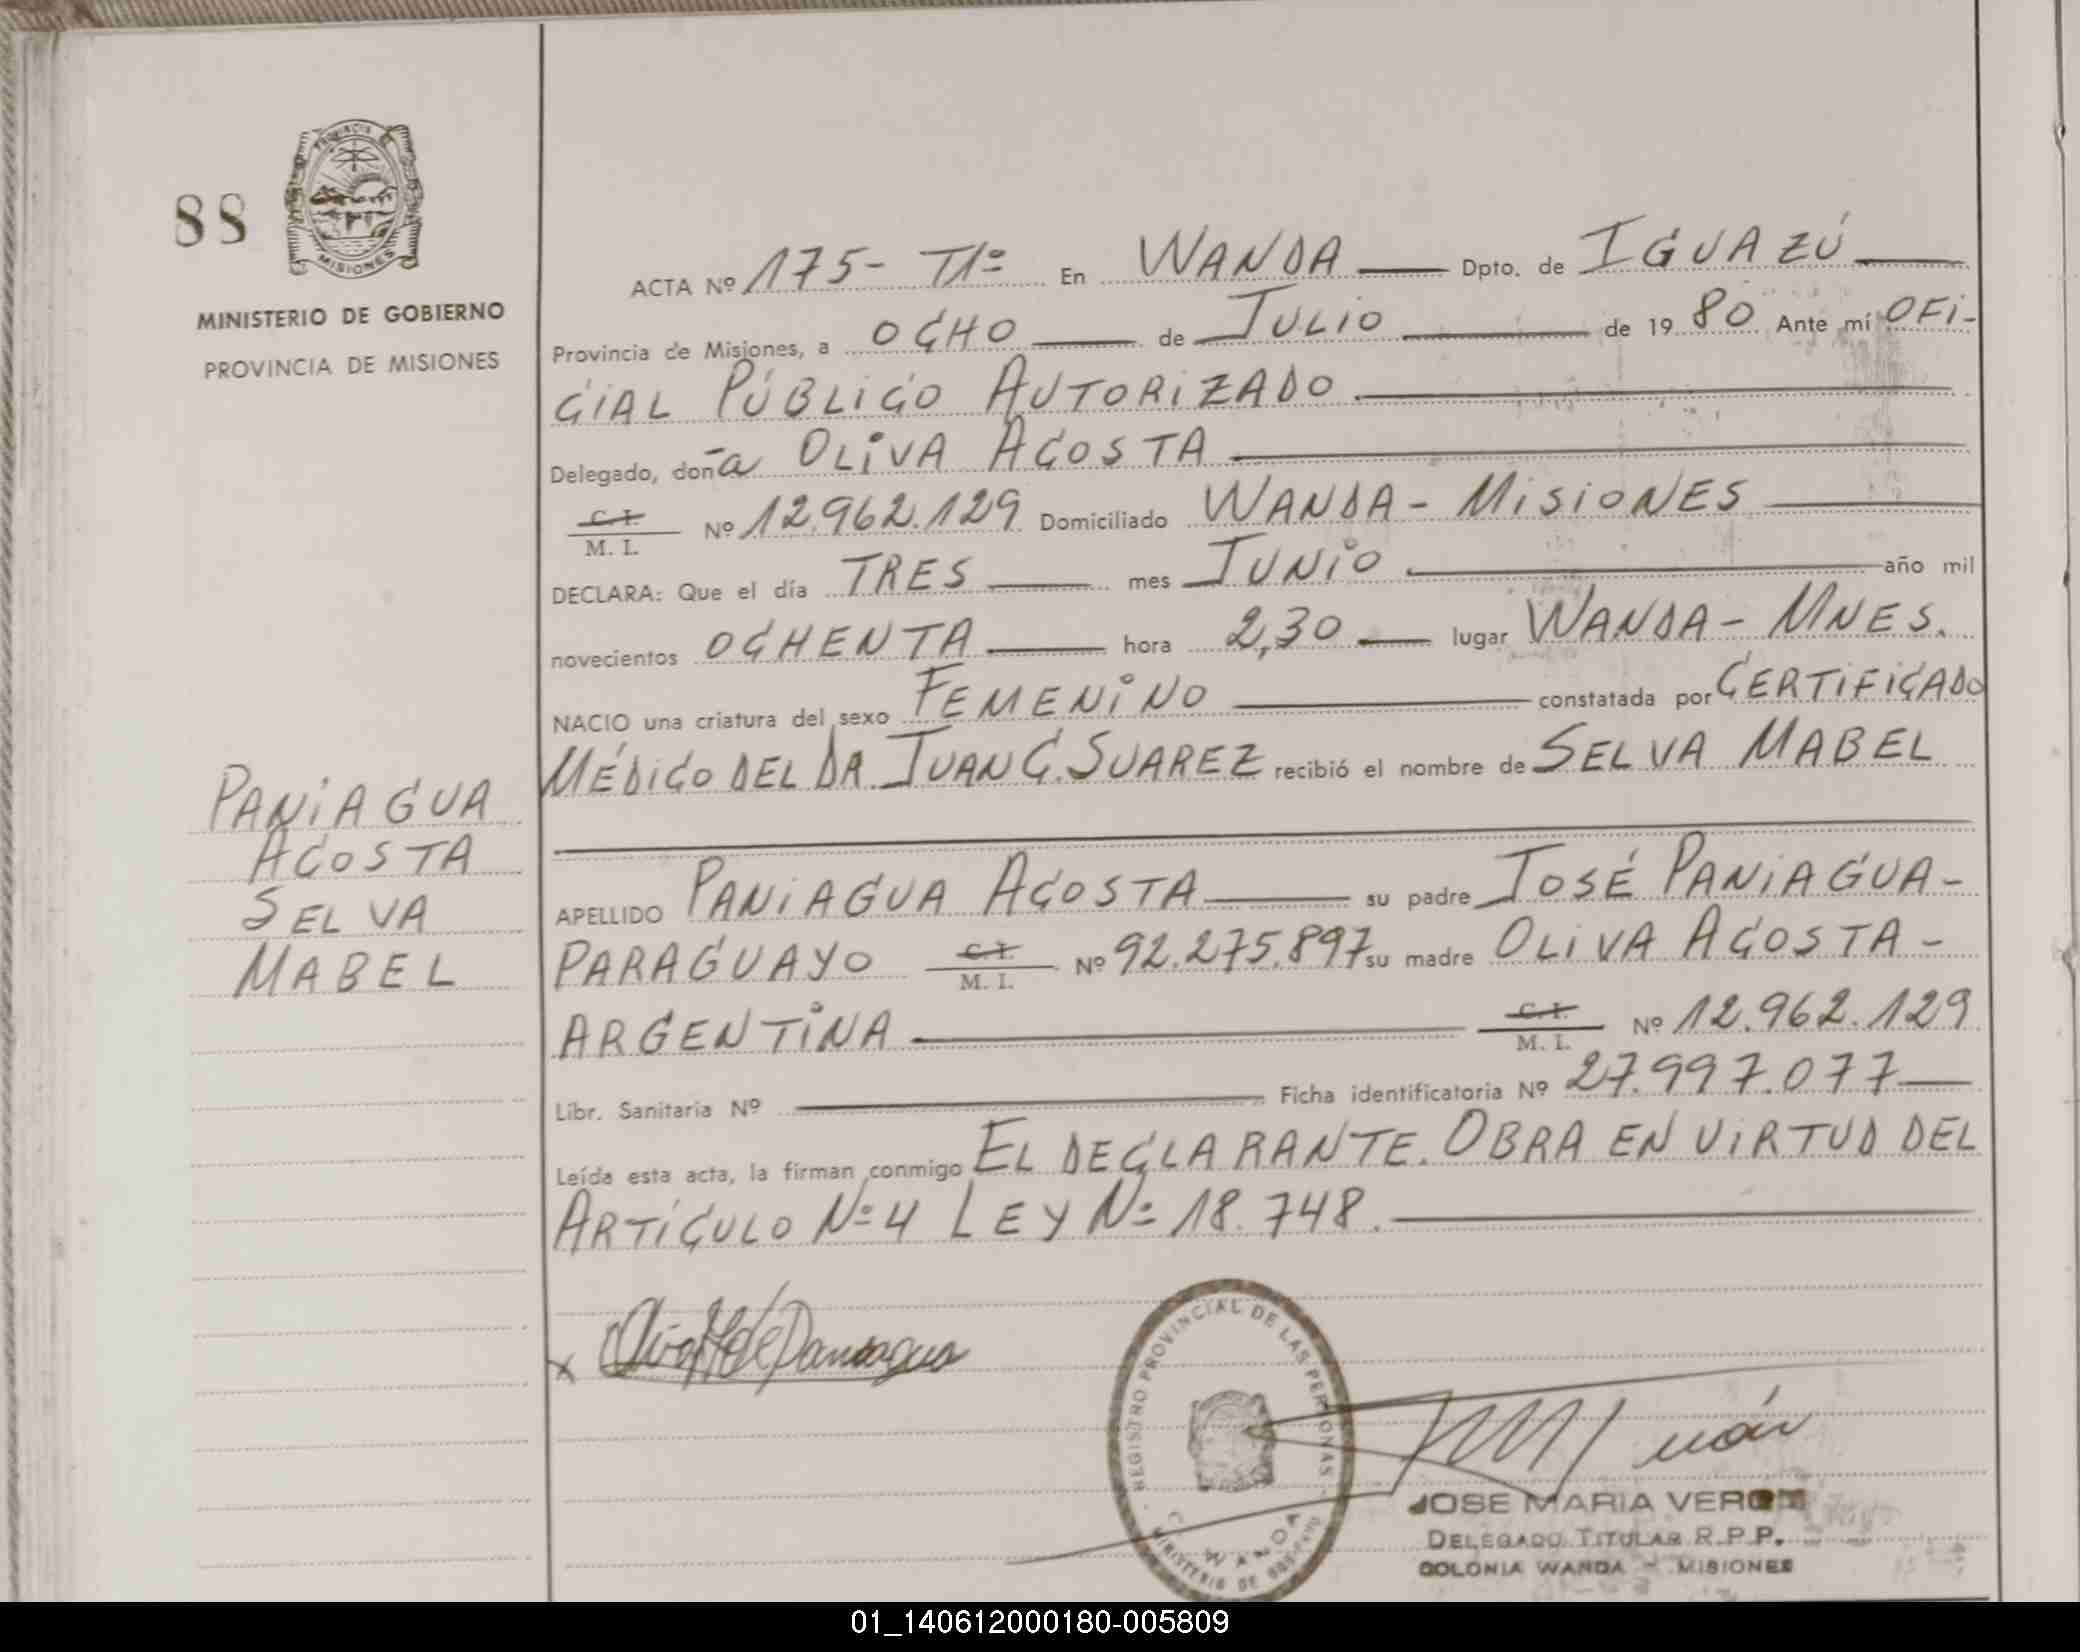 88
PROVINCIA
MISIONES
MINISTERIO DE GOBIERNO
PROVINCIA DE MISIONES
PANIAGUA
ACOSTA
SELVA
MABEL
ACTA Nº 175- Tº1º En WANDA Dpto. de IGUAZÚ
Provincia de Misiones, a OCHO de JULIO de 1980 Ante mí OFI-
CIAL PÚBLICO AUTORIZADO
Delegado, doña OLIVA ACOSTA
C. I. / M. I. Nº 12.962.129 Domiciliado WANDA - MISIONES
DECLARA: Que el día TRES mes JUNIO año mil
novecientos OCHENTA hora 2,30 lugar WANDA - MNES.
NACIO una criatura del sexo FEMENINO constatada por CERTIFICADO
MÉDICO DEL DR. JUAN C. SUAREZ recibió el nombre de SELVA MABEL
APELLIDO PANIAGUA ACOSTA su padre JOSÉ PANIAGUA -
PARAGUAYO C. I. / M. I. Nº 92.275.897 su madre OLIVA ACOSTA -
ARGENTINA C. I. / M. I. Nº 12.962.129
Libr. Sanitaria Nº Ficha identificatoria Nº 27.997.077
Leída esta acta, la firman conmigo EL DECLARANTE. OBRA EN VIRTUD DEL
ARTÍCULO Nº 4 LEY Nº 18.748.
x
REGISTRO PROVINCIAL DE LAS PERSONAS
WANDA
MINISTERIO DE GOBIERNO
JOSE MARIA VERON
DELEGADO TITULAR R.P.P.
COLONIA WANDA - MISIONES
01_140612000180-005809